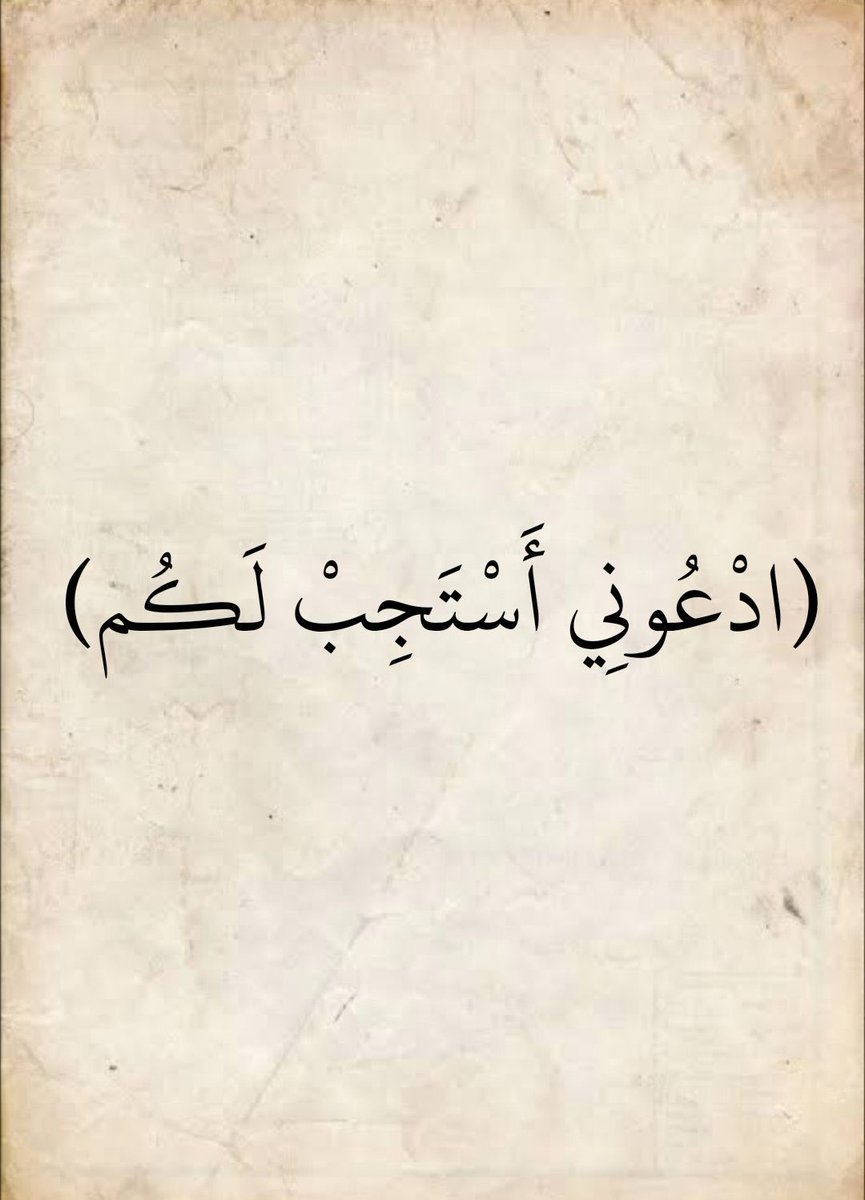 (ادْعُونِي أَسْتَجِبْ لَكُم)